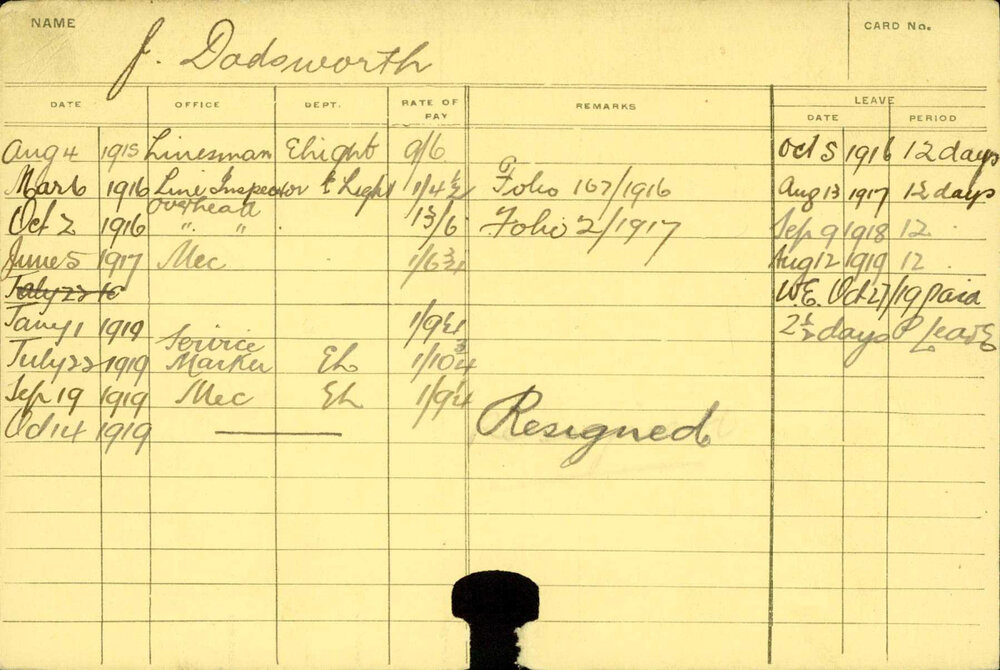 NAME
J. Dodsworth
CARD No.
DATE OFFICE DEPT. RATE OF PAY REMARKS LEAVE
DATE PERIOD
Aug 4 1915 Linesman E Light 9/6 Oct 5 1916 12 days
Mar 6 1916 Line Inspector E Light 1/4½ Folio 167/1916 Aug 13 1917 12 days
overhead
Oct 2 1916 " " 13/6 Folio 2/1917 Sep 9 1918 12
June 5 1917 Mec 1/6¾ Aug 12 1919 12
July 22 W.E. Oct 27/19 paid
Jany 1 1919 1/9¼ 2½ days P Leave
Service
July 22 1919 Marker EL 1/10¾
Sep 19 1919 Mec EL 1/9¼
Oct 14 1919 Resigned